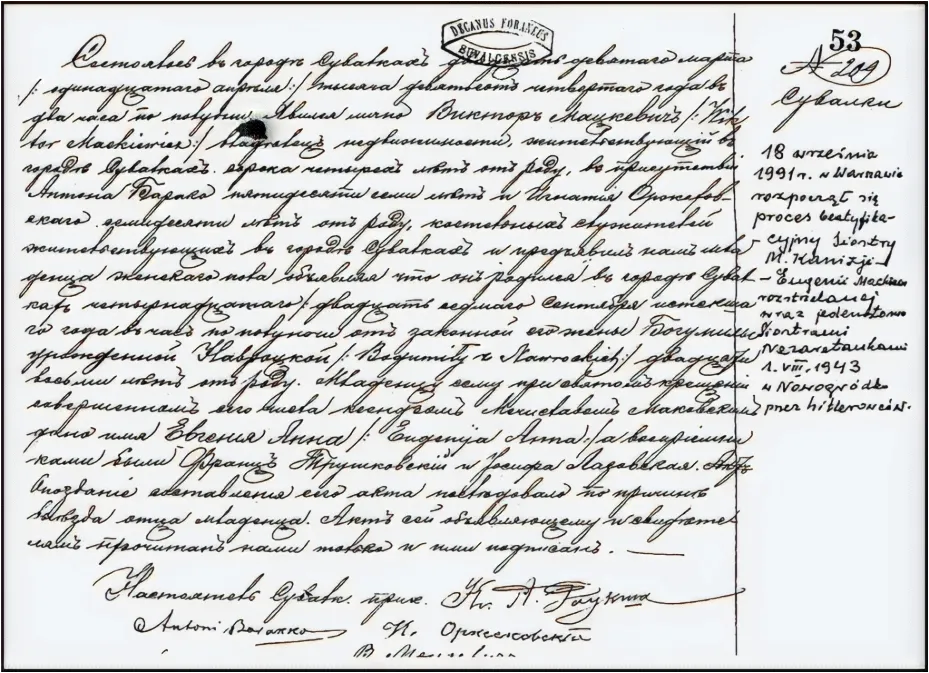 DECANUS FORANEUS
SUVALCENSIS
53
№ 204
Сувалки
Состоялось въ городѣ Сувалкахъ двадцать девятаго марта
/: одинадцатаго апрѣля:/ тысяча девятьсотъ четвертаго года въ
два часа по полудни. Явился лично Викторъ Мацкевичъ /: Wik-
tor Mackiewicz:/ владѣлецъ недвижимости, жительствующій въ
городѣ Сувалкахъ сорока четырехъ лѣтъ отъ роду, въ присутствіи
Антона Барако пятидесяти семи лѣтъ и Игнатія Оржехов-
скаго семидесяти лѣтъ отъ роду, костельныхъ служителей
жительствующихъ въ городѣ Сувалкахъ и предъявилъ намъ мла-
денца женскаго пола объявляя что онъ родился въ городѣ Сувал-
кахъ четырнадцатаго /: двадцать седьмаго Сентября истекша-
го года въ часъ по полуночи отъ законной его жены Богумилы
урожденной Навроцкой /: Bogumiły z Nawrockich:/ двадцати
восьми лѣтъ отъ роду. Младенцу сему при святомъ крещеніи
совершенномъ сего числа ксендзомъ Мечиславомъ Маковскимъ
дано имя Евгенія Анна /: Eugenija Anna:/ а воспріемни-
ками были Францъ Трушковскій и Іосифа Лазовская.
Опозданіе составленія сего акта послѣдовало по причинѣ
выѣзда отца младенца. Актъ сей объявляющему и свидѣте-
лямъ прочитанъ нами только и ими подписанъ. —
Настоятель Сувалк. прих. Кс.
Antoni Barakko И. Оржеховскій
18 września
1991 r. w Warszawie
rozpoczął się
proces beatyfika-
cyjny Siostry
M. Kanizji –
– Eugenii Mackiewicz
rozstrzelanej
wraz z jedenastoma
Siostrami
Nazaretankami
1. VIII. 1943
w Nowogródku
przez hitlerowców.